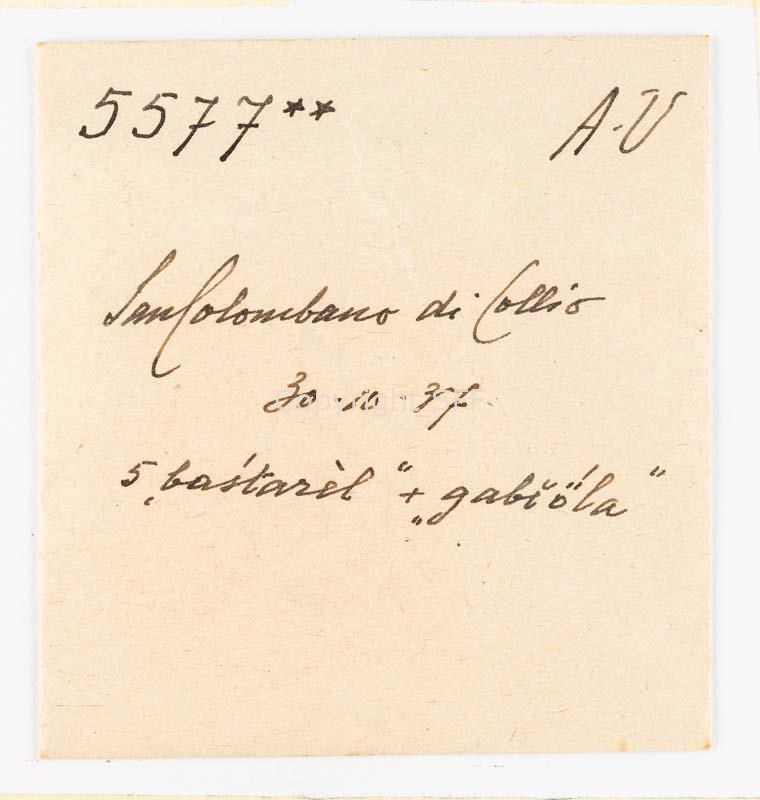 5577** A-U
San Colombano di Collio
30·10·37.
5 „baśtarèl“ + „gabi̯ö́la“